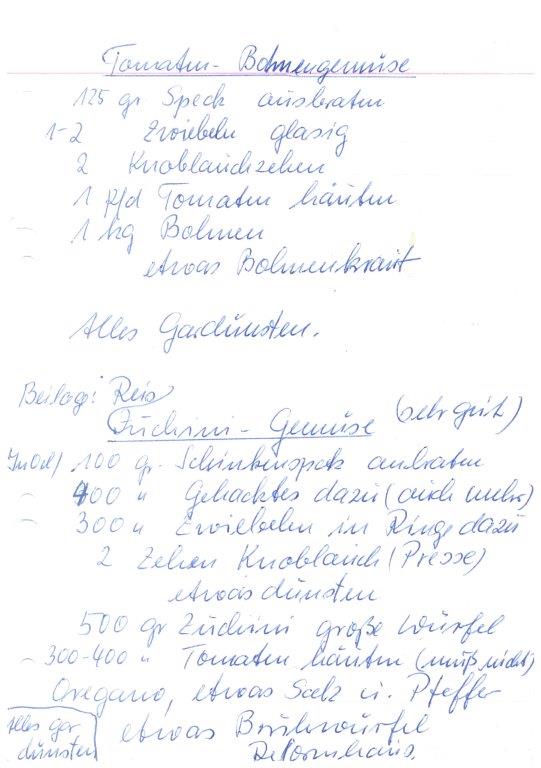 Tomaten-Bohnengemüse
125 gr Speck ausbraten
1-2 Zwiebeln glasig
2 Knoblauchzehen
1 Pfd Tomaten häuten
1 kg Bohnen
etwas Bohnenkraut
Alles Gardünsten.
Beilage: Reis
Zuchini-Gemüse (sehr gut)
In Oel / 100 gr. Schinkenspeck anbraten
400 " Gehacktes dazu (auch mehr)
300 " Zwiebeln in Ringe dazu
2 Zehen Knoblauch (Presse)
etwas dünsten
500 gr Zuchini große Würfel
300-400 " Tomaten häuten (muß nicht)
Oregano, etwas Salz u. Pfeffer
etwas Brühwürfel
Reformhaus.
alles gar
dünsten